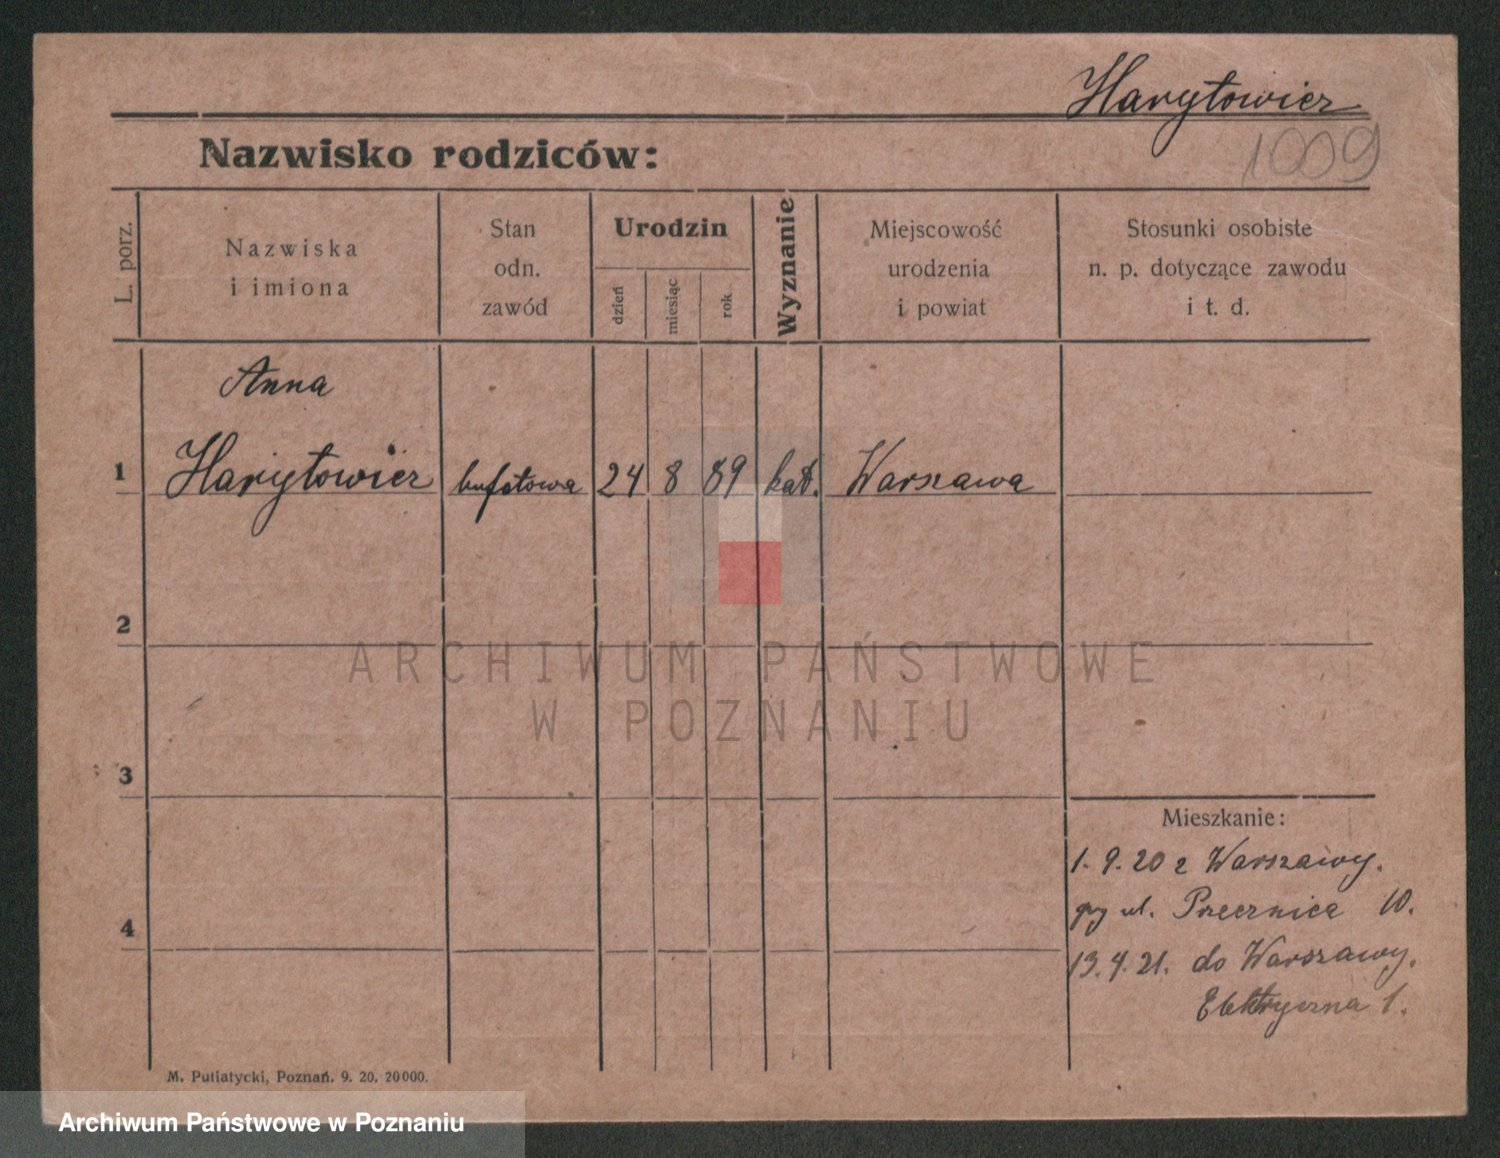 Harytowicz
1009
Nazwisko rodziców:
L. porz.
Nazwiska
i imiona
Stan
odn.
zawód
Urodzin
dzień
miesiąc
rok
Wyznanie
Miejscowość
urodzenia
i powiat
Stosunki osobiste
n. p. dotyczące zawodu
i t. d.
Anna
1 Harytowicz bufetowa 24 8 89 kat. Warszawa
2
ARCHIWUM PAŃSTWOWE
W POZNANIU
3
Mieszkanie:
1. 9. 20 z Warszawy.
ul. Przecznica 10.
4
13. 4. 21. do Warszawy.
Elektryczna 1.
M. Putiatycki, Poznań. 9. 20. 20000.
Archiwum Państwowe w Poznaniu